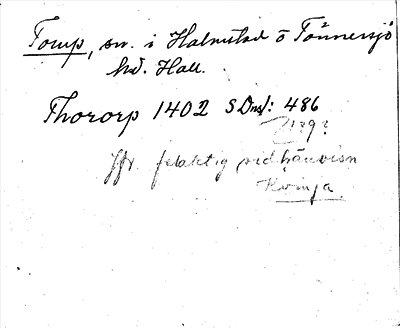 Torup, sn. i Halmstad o Tönnersjö
hd. Hall.
Thororp 1402 SDns1: 486
139?
Jfr. felaktig sidhänvisn
Kvinja.